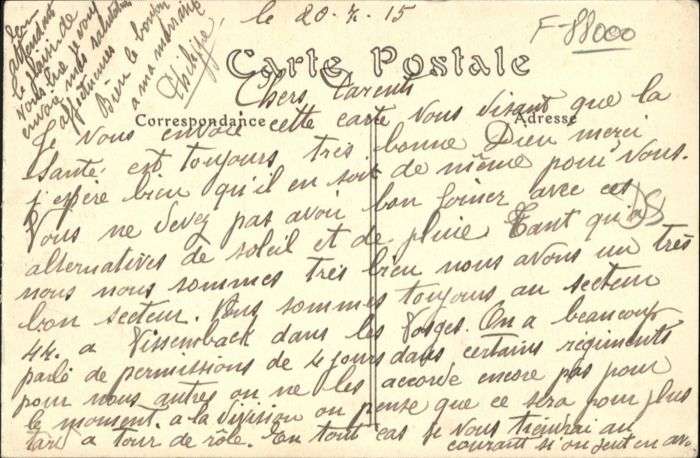 le 20-7-15
F-88000
Carte Postale
Correspondance
Adresse
Chers Parents
Je vous envoie cette carte vous disant que la
santé est toujours très bonne Dieu merci
j'espère bien qu'il en soit de même pour vous.
Vous ne devez pas avoir bon foiner avec ces
alternatives de soleil et de pluie Tant qu'à
nous nous sommes très bien nous avons un très
bon secteur. Nous sommes toujours au secteur
44. a Wissemback dans les Vosges. On a beaucoup
parlé de permissions de 4 jours dans certains régiments
pour nous autres on ne les accorde encore pas pour
le moment. a la Division on pense que ce sera pour plus
tard a tour de rôle. En tout cas je vous tiendrai au
courant si on peut en av.
En
attendant
le plaisir de
vous lire je vous
envoie mes salutations
affectueuses
Bien le bonjour
a ma marraine
Philippe